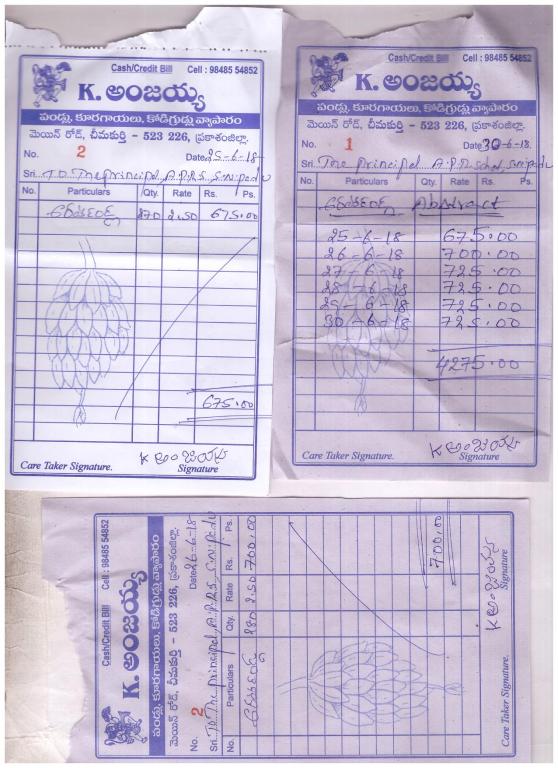 Cash/Credit Bill Cell : 98485 54852
K. అంజయ్య
పండ్లు, కూరగాయలు, కోడిగ్రుడ్లు వ్యాపారం
మెయిన్ రోడ్, చీమకుర్తి - 523 226, ప్రకాశంజిల్లా.
No. 2 Date 25-6-18
Sri. TO The principal, A.P.R.S, S.N.padu
No. Particulars Qty. Rate Rs. Ps.
270 2.50 675.00
675.00
K అంజయ్య
Care Taker Signature. Signature
Cash/Credit Bill Cell : 98485 54852
K. అంజయ్య
పండ్లు, కూరగాయలు, కోడిగ్రుడ్లు వ్యాపారం
మెయిన్ రోడ్, చీమకుర్తి - 523 226, ప్రకాశంజిల్లా.
No. 1 Date 30-6-18
Sri. The principal A.P.R. School, S.N.padu
No. Particulars Qty. Rate Rs. Ps.
Abstract
25-6-18 675.00
26-6-18 700.00
27-6-18 725.00
28-6-18 725.00
29-6-18 725.00
30-6-18 725.00
4275.00
K అంజయ్య
Care Taker Signature. Signature
Cash/Credit Bill Cell : 98485 54852
K. అంజయ్య
పండ్లు, కూరగాయలు, కోడిగ్రుడ్లు వ్యాపారం
మెయిన్ రోడ్, చీమకుర్తి - 523 226, ప్రకాశంజిల్లా.
No. 2 Date 26-6-18
Sri. TO The principal, A.P.R.S, S.N.padu
No. Particulars Qty. Rate Rs. Ps.
280 2.50 700.00
700.00
K అంజయ్య
Care Taker Signature. Signature